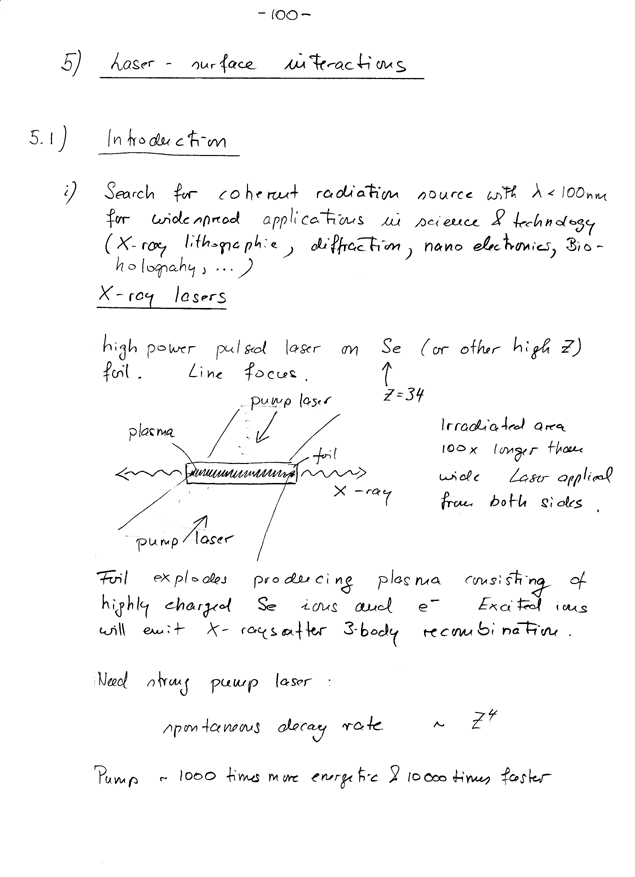 -100-
5) Laser - surface interactions
5.1) Introduction
i) Search for coherent radiation source with λ < 100nm
for widespread applications in science & technology
(X-ray lithographie, diffraction, nano electronics, Bio-
holograhy, ...)
X-ray lasers
high power pulsed laser on Se (or other high Z)
foil. Line focus.
↑
Z=34
pump laser
plasma
foil
X-ray
pump laser
Irradiated area
100x longer than
wide Laser applied
from both sides.
Foil explodes producing plasma consisting of
highly charged Se ions and e⁻ Excited ions
will emit X-rays after 3-body recombination.
Need strong pump laser :
spontaneous decay rate ~ Z⁴
Pump ~ 1000 times more energetic & 10000 times faster